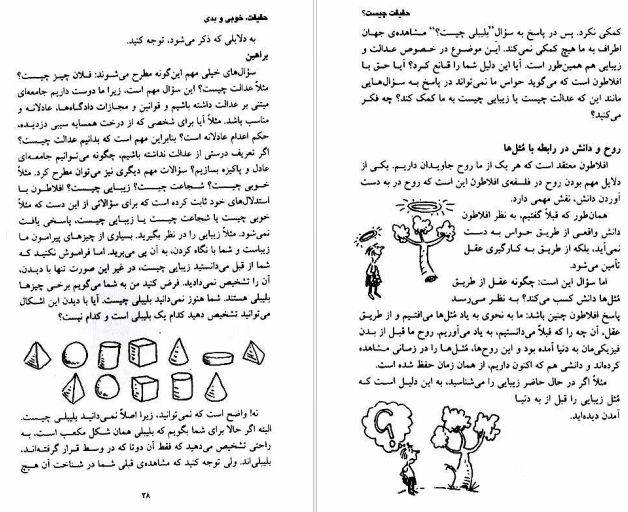 حقیقت، خوبی و بدی
به دلایلی که ذکر می‌شود، توجه کنید.
براهین
سؤال‌های خیلی مهم این‌گونه مطرح می‌شوند: فلان چیز چیست؟
مثلاً عدالت چیست؟ این سؤال مهم است، زیرا ما دوست داریم جامعه‌ای
مبتنی بر عدالت داشته باشیم و قوانین و مجازات دادگاه‌ها، عادلانه و
مناسب باشد. مثلاً آیا برای شخصی که از درخت همسایه سیبی دزدیده،
حکم اعدام عادلانه است؟ بنابراین مهم است که بدانیم عدالت چیست؟
اگر تعریف درستی از عدالت نداشته باشیم، چگونه می‌توانیم جامعه‌ای
عادل و پاکیزه بسازیم؟ سؤالات مهم دیگری نیز می‌توان مطرح کرد. مثلاً
خوبی چیست؟ شجاعت چیست؟ زیبایی چیست؟ افلاطون با
استدلال‌های خود ثابت کرده است که برای سؤالاتی از این دست که مثلاً
خوبی چیست یا شجاعت چیست یا زیبایی چیست، پاسخی یافت
نمی‌شود. مثلاً زیبایی را در نظر بگیرید. بسیاری از چیزهای پیرامون ما
زیباست و شما با نگاه کردن، به آن پی می‌برید. اما فراموش نکنید که
شما از قبل می‌دانستید زیبایی چیست، در غیر این صورت تنها با دیدن،
آن را تشخیص نمی‌دادید. فرض کنید من به شما می‌گویم برخی چیزها
بلیبلی هستند. شما هنوز نمی‌دانید بلیبلی چیست. آیا با دیدن این اشکال
می‌توانید تشخیص دهید کدام یک بلیبلی است و کدام نیست؟
نه! واضح است که نمی‌توانید، زیرا اصلاً نمی‌دانید بلیبلی چیست.
البته اگر حالا برای شما بگویم که بلیبلی همان شکل مکعب است، به
راحتی تشخیص می‌دهید که فقط آن دوتا که در وسط قرار گرفته‌اند،
بلیبلی‌اند. ولی توجه کنید که مشاهده‌ی قبلی شما در شناخت آن هیچ
۳۸
حقیقت چیست؟
کمکی نکرد. پس در پاسخ به سؤال "بلیبلی چیست؟" مشاهده‌ی جهان
اطراف به ما هیچ کمکی نمی‌کند. این موضوع در خصوص عدالت و
زیبایی هم همین‌طور است. آیا این دلیل شما را قانع کرد؟ آیا حق با
افلاطون است که می‌گوید حواس ما نمی‌تواند در پاسخ به سؤال‌هایی
مانند این که عدالت چیست یا زیبایی چیست به ما کمک کند؟ چه فکر
می‌کنید؟
روح و دانش در رابطه با مُثل‌ها
افلاطون معتقد است که هر یک از ما روح جاویدان داریم. یکی از
دلایل مهم بودن روح در فلسفه‌ی افلاطون این است که روح در به دست
آوردن دانش، نقش مهمی دارد.
همان‌طور که قبلاً گفتیم، به نظر افلاطون
دانش واقعی از طریق حواس به دست
نمی‌آید، بلکه از طریق به کارگیری عقل
تأمین می‌شود.
اما سؤال این است: چگونه عقل از طریق
مُثل‌ها دانش کسب می‌کند؟ به نظر می‌رسد
پاسخ افلاطون چنین باشد: ما به نحوی به یاد مُثل‌ها می‌افتیم و از طریق
عقل، آن چه را که قبلاً می‌دانستیم، به یاد می‌آوریم. روح ما قبل از بدن
فیزیکی‌مان به دنیا آمده بود و این روح‌ها، مُثل‌ها را در زمانی مشاهده
کرده‌اند و دانشی هم که اکنون داریم، از همان زمان حفظ شده است.
مثلاً اگر در حال حاضر زیبایی را می‌شناسید، به این دلیل است که
مُثل زیبایی را قبل از به دنیا
آمدن دیده‌اید.
؟